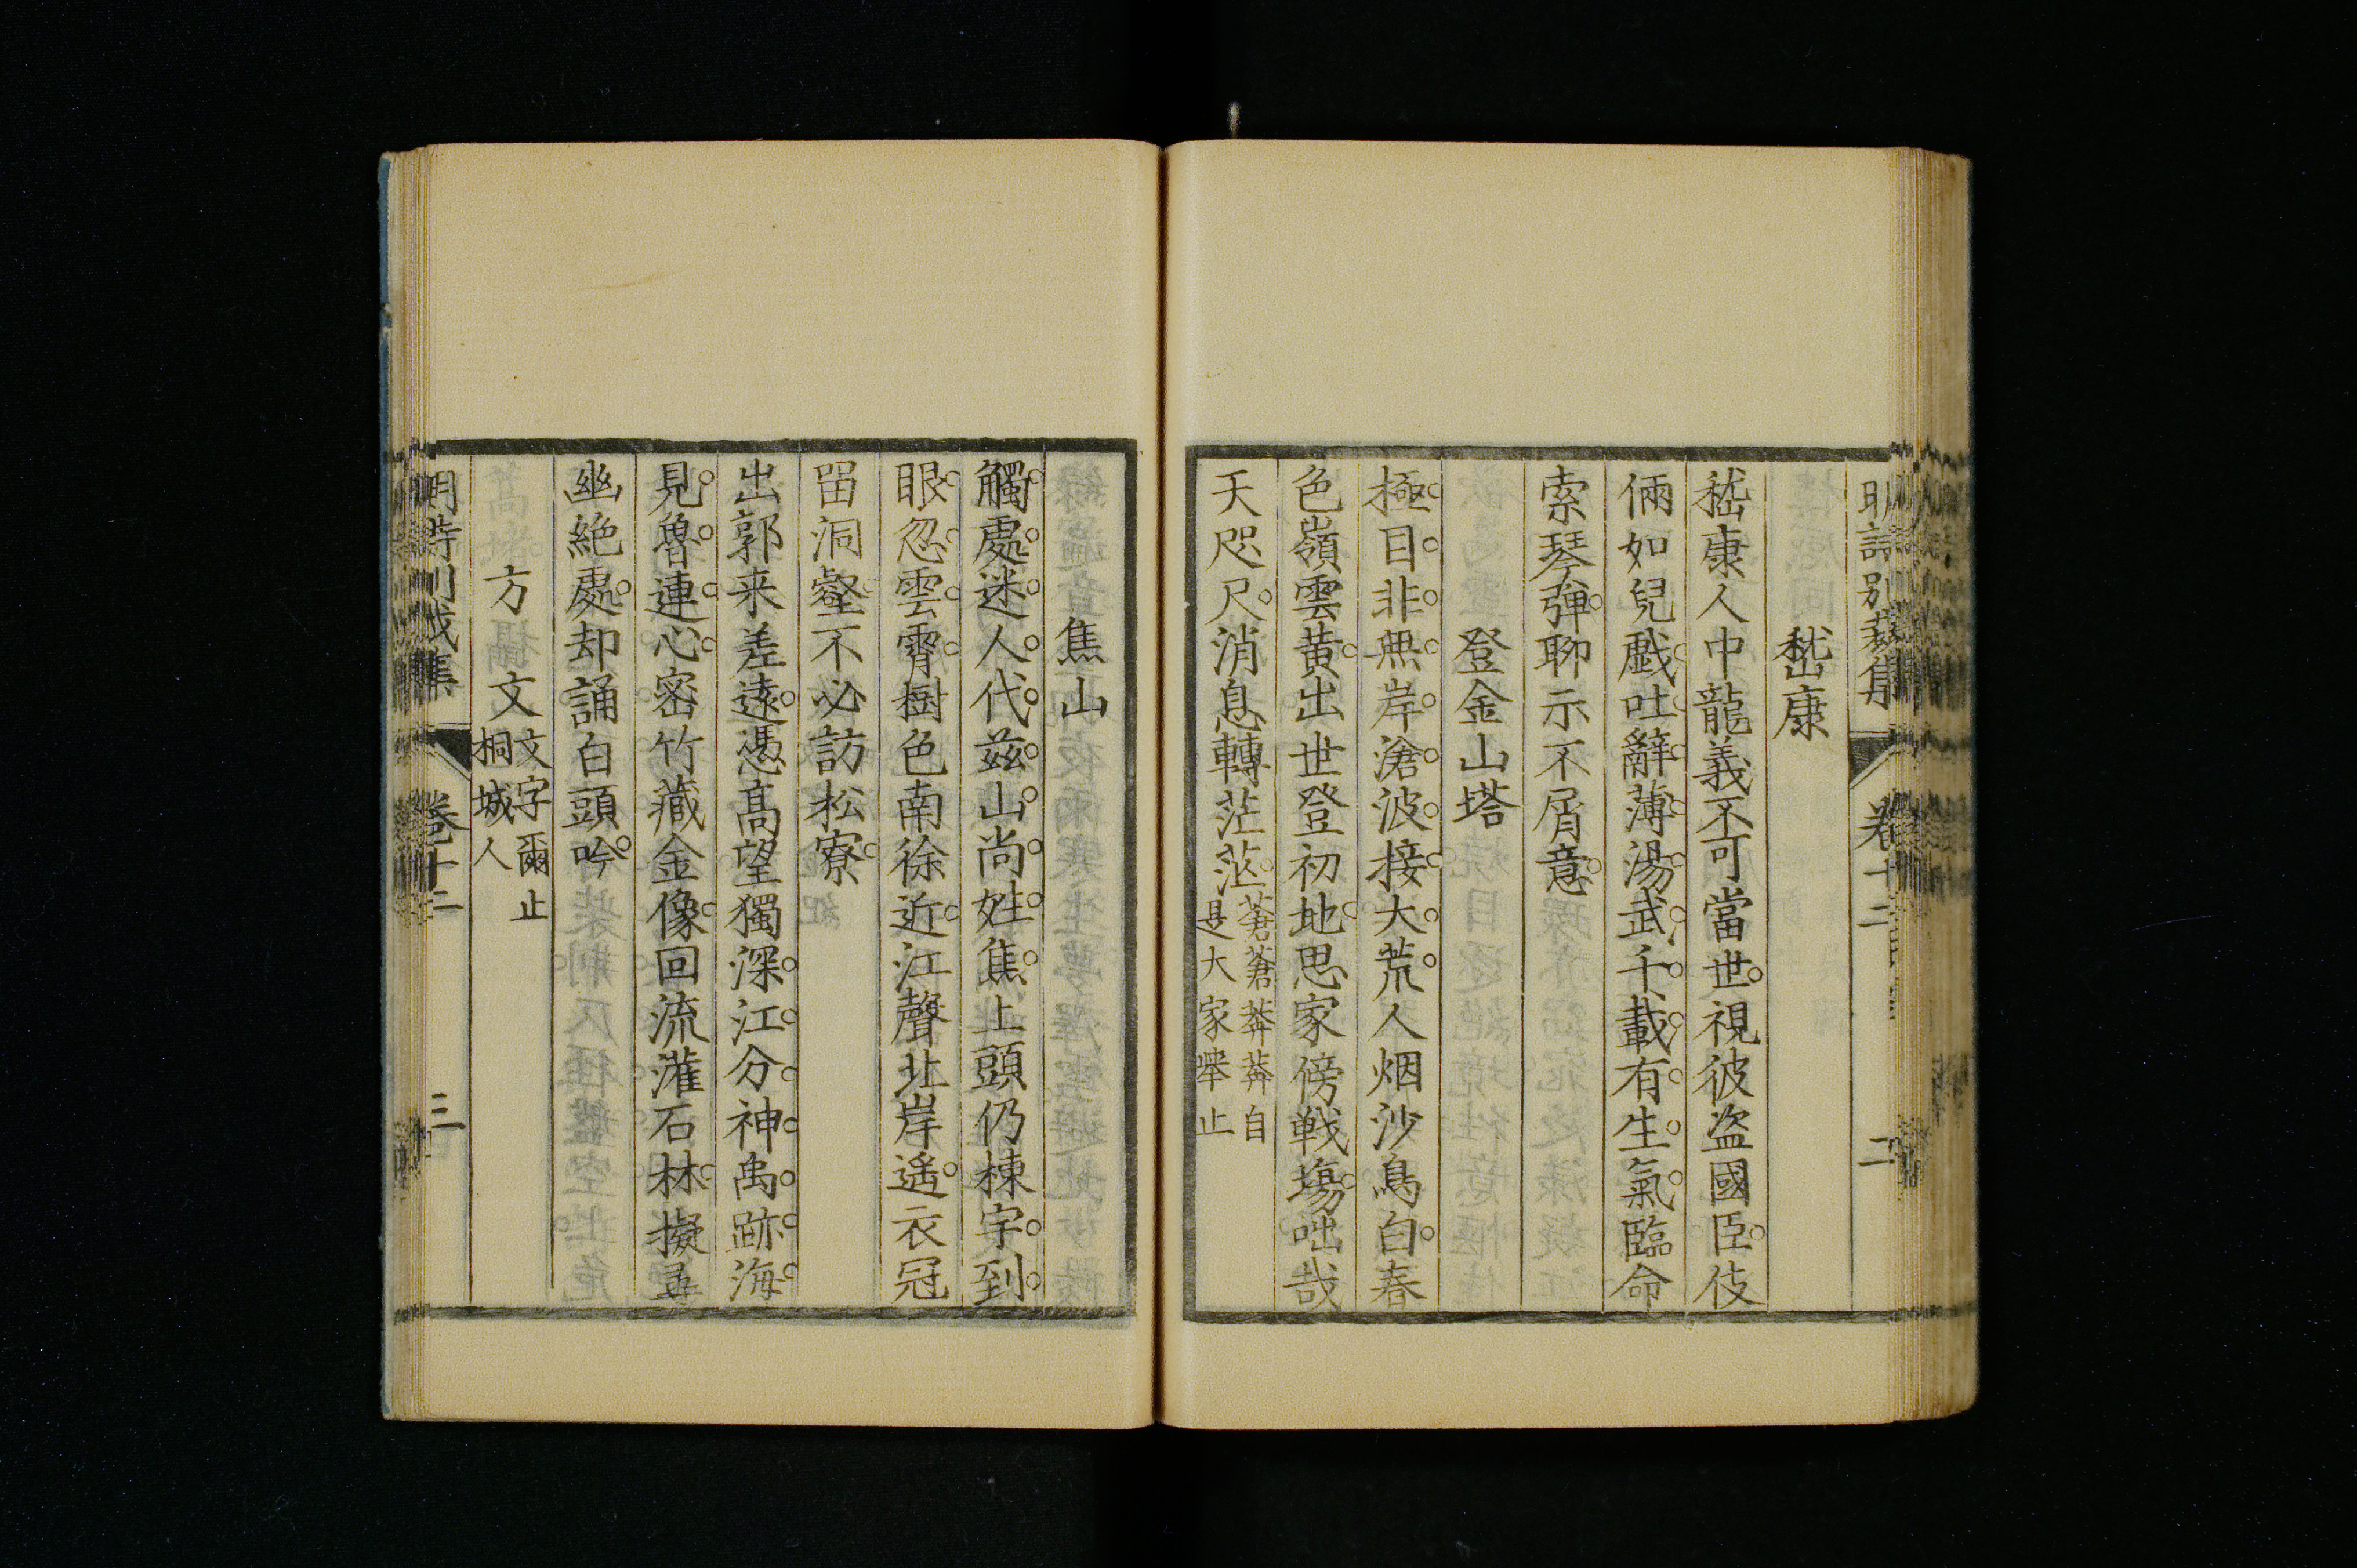 明詩別裁集 卷十二 二
嵇康
嵇康人中龍義不可當世視彼盜國臣伎
倆如兒戲吐辭薄湯武千載有生氣臨命
索琴彈聊示不屑意
登金山塔
極目非無岸滄波接大荒人烟沙鳥白春
色嶺雲黃出世登初地思家傍戰場咄哉
天咫尺消息轉茫茫蒼蒼莽莽自
是大家舉止
焦山
觸處迷人代兹山尚姓焦上頭仍棟宇到
眼忽雲霄樹色南徐近江聲北岸遙衣冠
留洞壑不必訪松寮
出郭来差遠憑高望獨深江分神禹跡海
見魯連心密竹藏金像回流灌石林擬尋
幽絶處却誦白頭吟
方文文字爾止
桐城人
明詩別裁集 卷十二 三